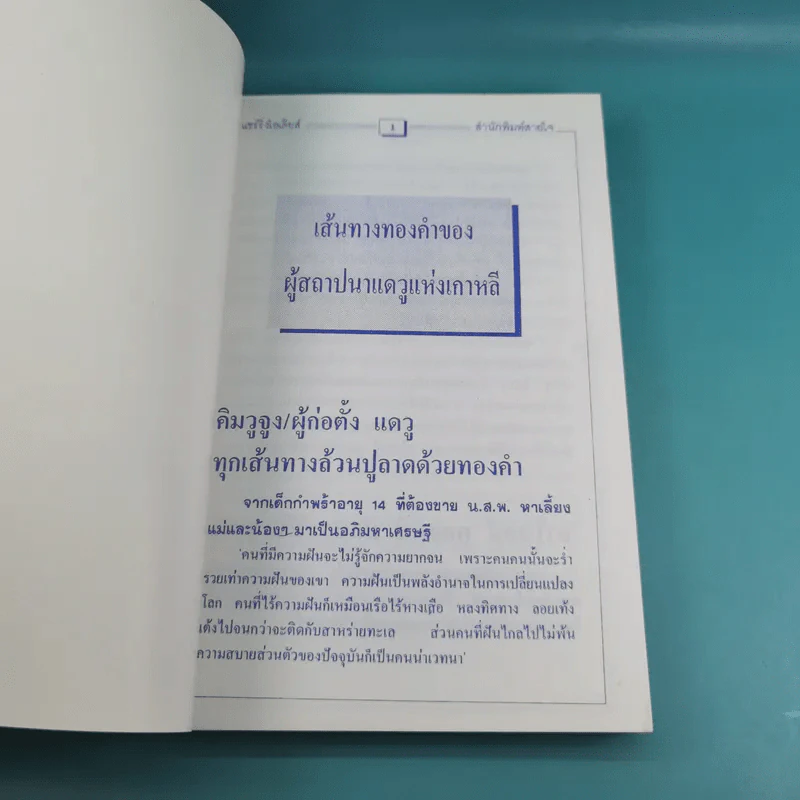 แฮร์รี่ ฉิลเลียส์ 1 สำนักพิมพ์สายใจ
เส้นทางทองคำของ
ผู้สถาปนาแดวูแห่งเกาหลี
คิมวูจูง/ผู้ก่อตั้ง แดวู
ทุกเส้นทางล้วนปูลาดด้วยทองคำ
จากเด็กกำพร้าอายุ 14 ที่ต้องขาย น.ส.พ. หาเลี้ยง
แม่และน้องๆ มาเป็นอภิมหาเศรษฐี
'คนที่มีความฝันจะไม่รู้จักความยากจน เพราะคนคนนั้นจะร่ำ
รวยเท่าความฝันของเขา ความฝันเป็นพลังอำนาจในการเปลี่ยนแปลง
โลก คนที่ไร้ความฝันก็เหมือนเรือไร้หางเสือ หลงทิศทาง ลอยเท้ง
เต้งไปจนกว่าจะติดกับสาหร่ายทะเล ส่วนคนที่ฝันไกลไปไม่พ้น
ความสบายส่วนตัวของปัจจุบันก็เป็นคนน่าเวทนา'